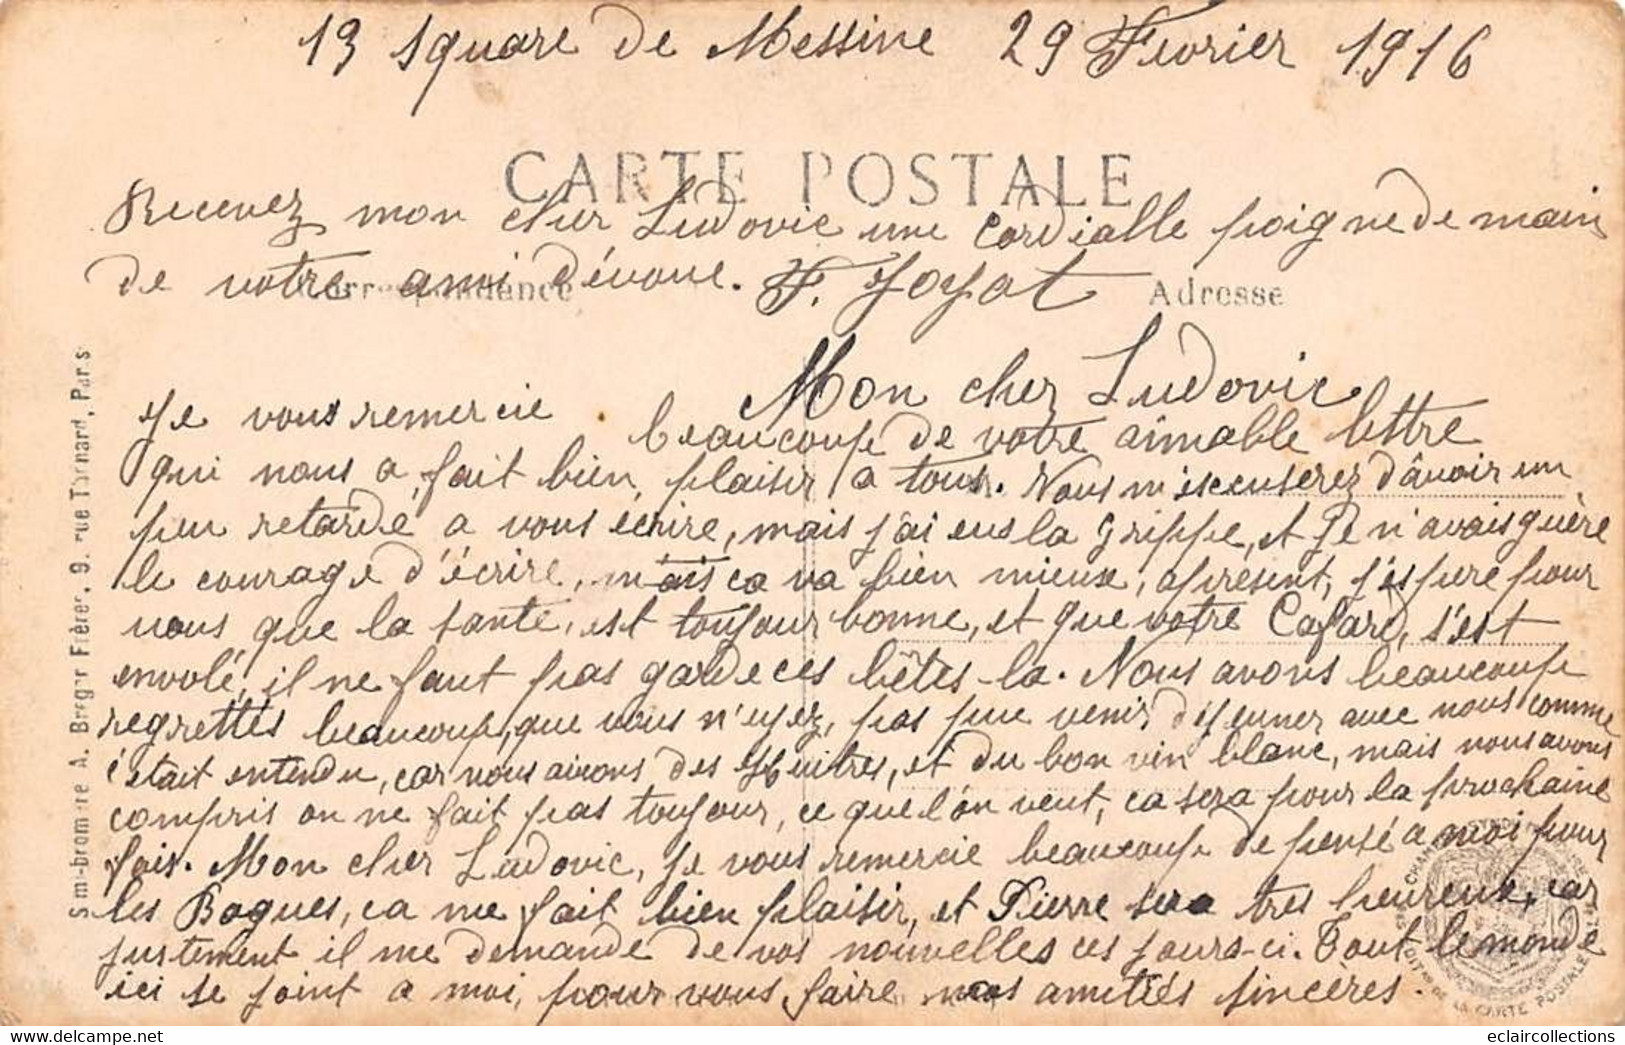 13 square de Messine 29 Fevrier 1916
CARTE POSTALE
Recevez mon cher Ludovic une Cordialle poigne de main
de votre ami dévoué. F. Joyot
Correspondance
Adresse
Mon cher Ludovic
Je vous remercie beaucoup de votre aimable lettre
qui nous a fait bien plaisir a tous. Vous m'escuserez d'âvoir un
peu retardé a vous écrire, mais j'ai eus la Grippe, et Je n'avais guère
le courage d'écrire, mais ca va bien mieux, apresent, j'espere pour
vous que la santé, est toujour bonne, et que votre Cafard, s'est
envolé, il ne faut pas garde ces bêtes-la. Nous avons beaucoup
regrettés beaucoup, que vous n'eyez, pas pue venir déjeuner avec nous comme
c'était entendu, car nous avions des Huitres, et du bon vin blanc, mais nous avons
compris on ne fait pas toujour, ce que l'on veut, ca sera pour la prochaine
fois. Mon cher Ludovic, je vous remercie beaucoup de pensé a moi pour
les Bagues, ca me fait bien plaisir, et Pierre sera tres heureux, car
justement il me demande de vos nouvelles ces jours-ci. Tout le monde
ici se joint a moi, pour vous faire nos amitiés sincères.
Sim-bromure A. Breger Frères, 9, rue Thénard, Paris
CHAMBRE SYNDICALE DE LA CARTE POSTALE
eclaircollections